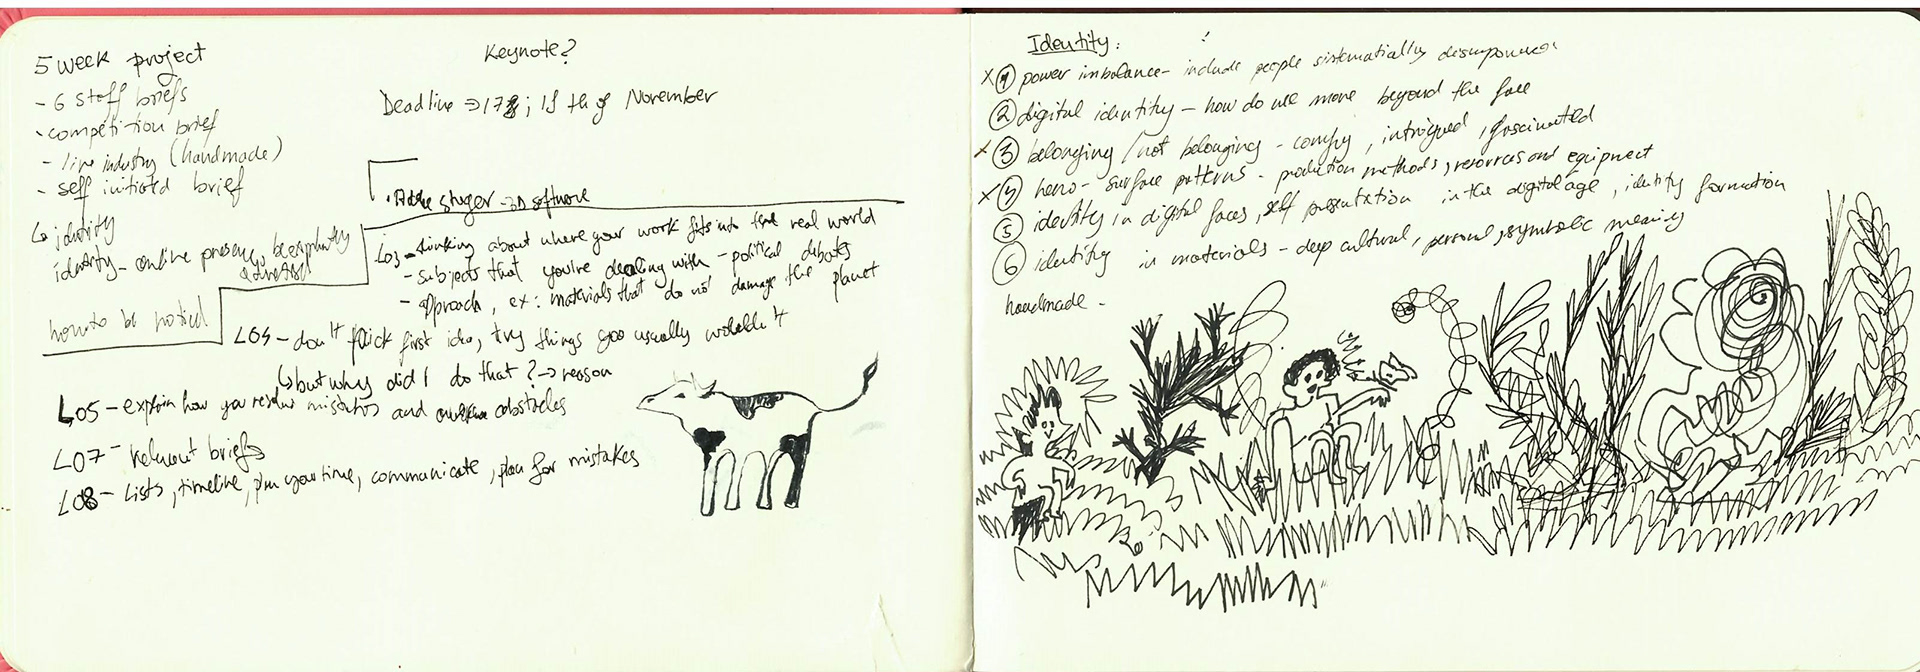 5 week project
- 6 staff briefs
- competition brief
- live industry (handmade)
- self initiated brief
↳ identity
identity - online presence, be explicitly
how to be noticed
Keynote?
Deadline → 17; 18 th of November
Adobe stager → 3D software
LO3 - thinking about where your work fits into the real world
- subjects that you're dealing with - political debates
- approach, ex: materials that do not damage the planet
LO4 - don't pick first idea, try things you usually wouldn't
↳ but why did I do that? → reason
LO5 - explain how you resolve mistakes and obstacles
LO7 - relevant briefs
LO8 - Lists, timeline, plan your time, communicate, plan for mistakes
Identity:
x ① power imbalance - include people sistematially
② digital identity - how do we move beyond the face
x ③ belonging / not belonging - comfy, intrigued, fascinated
x ④ hero - surface patterns - production methods, resources and equipment
⑤ identity in digital faces, self presentation in the digital age, identity formation
⑥ identity in materials - deep cultural, personal, symbolic meaning
handmade -